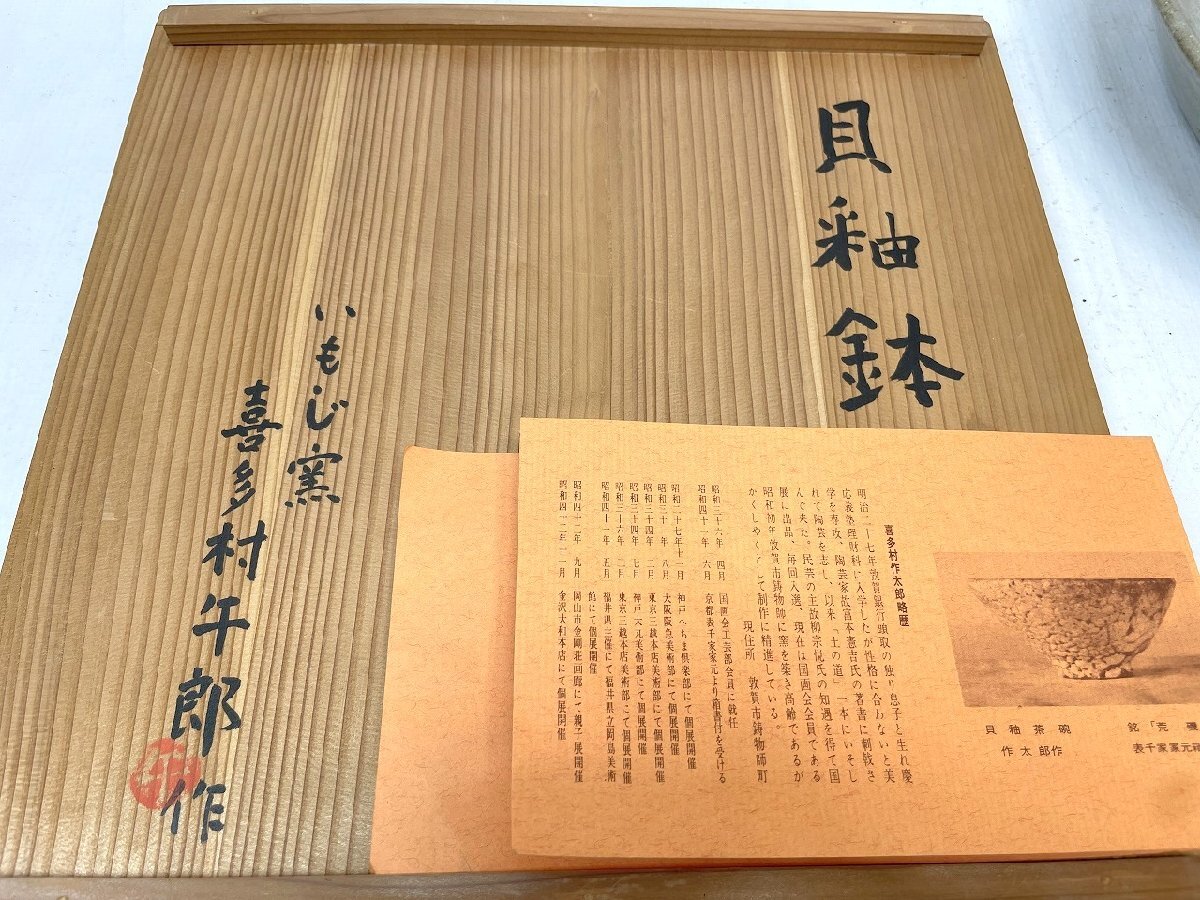 貝釉鉢
いもじ窯
喜多村午郎作
喜多村作太郎略歴
明治二十七年敦賀銀行頭取の独り息子と生れ慶
応義塾理財科に入学したが性格に合わないと美
学を専攻、陶芸家故富本憲吉氏の著書に刺戟さ
れて陶芸を志し、以来「土の道」一本にいそし
んで来た。民芸の主故柳宗悦氏の知遇を得て国
展に出品、毎回入選、現在は国画会会員である
昭和初年敦賀市鋳物師に窯を築き高齢であるが
かくしゃくとして制作に精進している。
現住所 敦賀市鋳物師町
昭和三十六年 四月 国画会工芸部会員に就任
昭和四十一年 六月 京都表千家家元より箱書付を受ける
昭和二十七年十一月 神戸へちま倶楽部にて個展開催
昭和三十年 八月 大阪阪急美術部にて個展開催
昭和三十四年 二月 東京三越本店美術部にて個展開催
昭和三十四年 七月 神戸大丸美術部にて個展開催
昭和三十六年 二月 東京三越本店美術部にて個展開催
昭和四十一年 五月 福井県主催にて福井県立岡島美術
館にて個展開催
昭和四十二年 九月 岡山市金剛荘画廊にて親子展開催
昭和四十二年十一月 金沢大和本店にて個展開催
貝釉茶碗
作太郎作
銘「荒磯
表千家家元